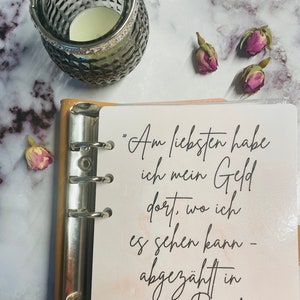 "Am liebsten habe
ich mein Geld
dort, wo ich
es sehen kann -
abgezählt in